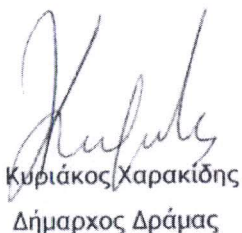 Κυριάκος Χαρακίδης
Δήμαρχος Δράμας